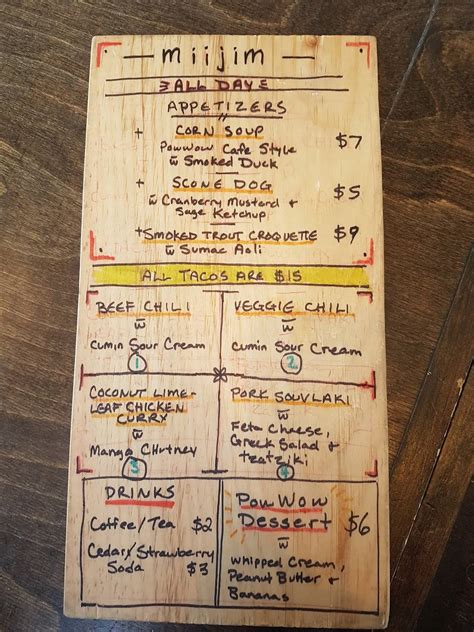 — miijim —
ALL DAY
APPETIZERS
+ CORN SOUP $7
Powwow Cafe Style
w̄ Smoked Duck
+ SCONE DOG $5
w̄ Cranberry Mustard &
Sage Ketchup
+ SMOKED TROUT CROQUETTE $9
w̄ Sumac Aoli
ALL TACOS ARE $15
BEEF CHILI
w̄
Cumin Sour Cream
1
VEGGIE CHILI
w̄
Cumin Sour Cream
2
COCONUT LIME-
LEAF CHICKEN
CURRY
w̄
Mango Chutney
3
PORK SOUVLAKI
w̄
Feta Cheese,
Greek Salad &
Tzatziki
4
DRINKS
Coffee/Tea $2
Cedar/Strawberry
Soda $3
PowWow
Dessert $6
w̄
Whipped Cream,
Peanut Butter &
Bananas